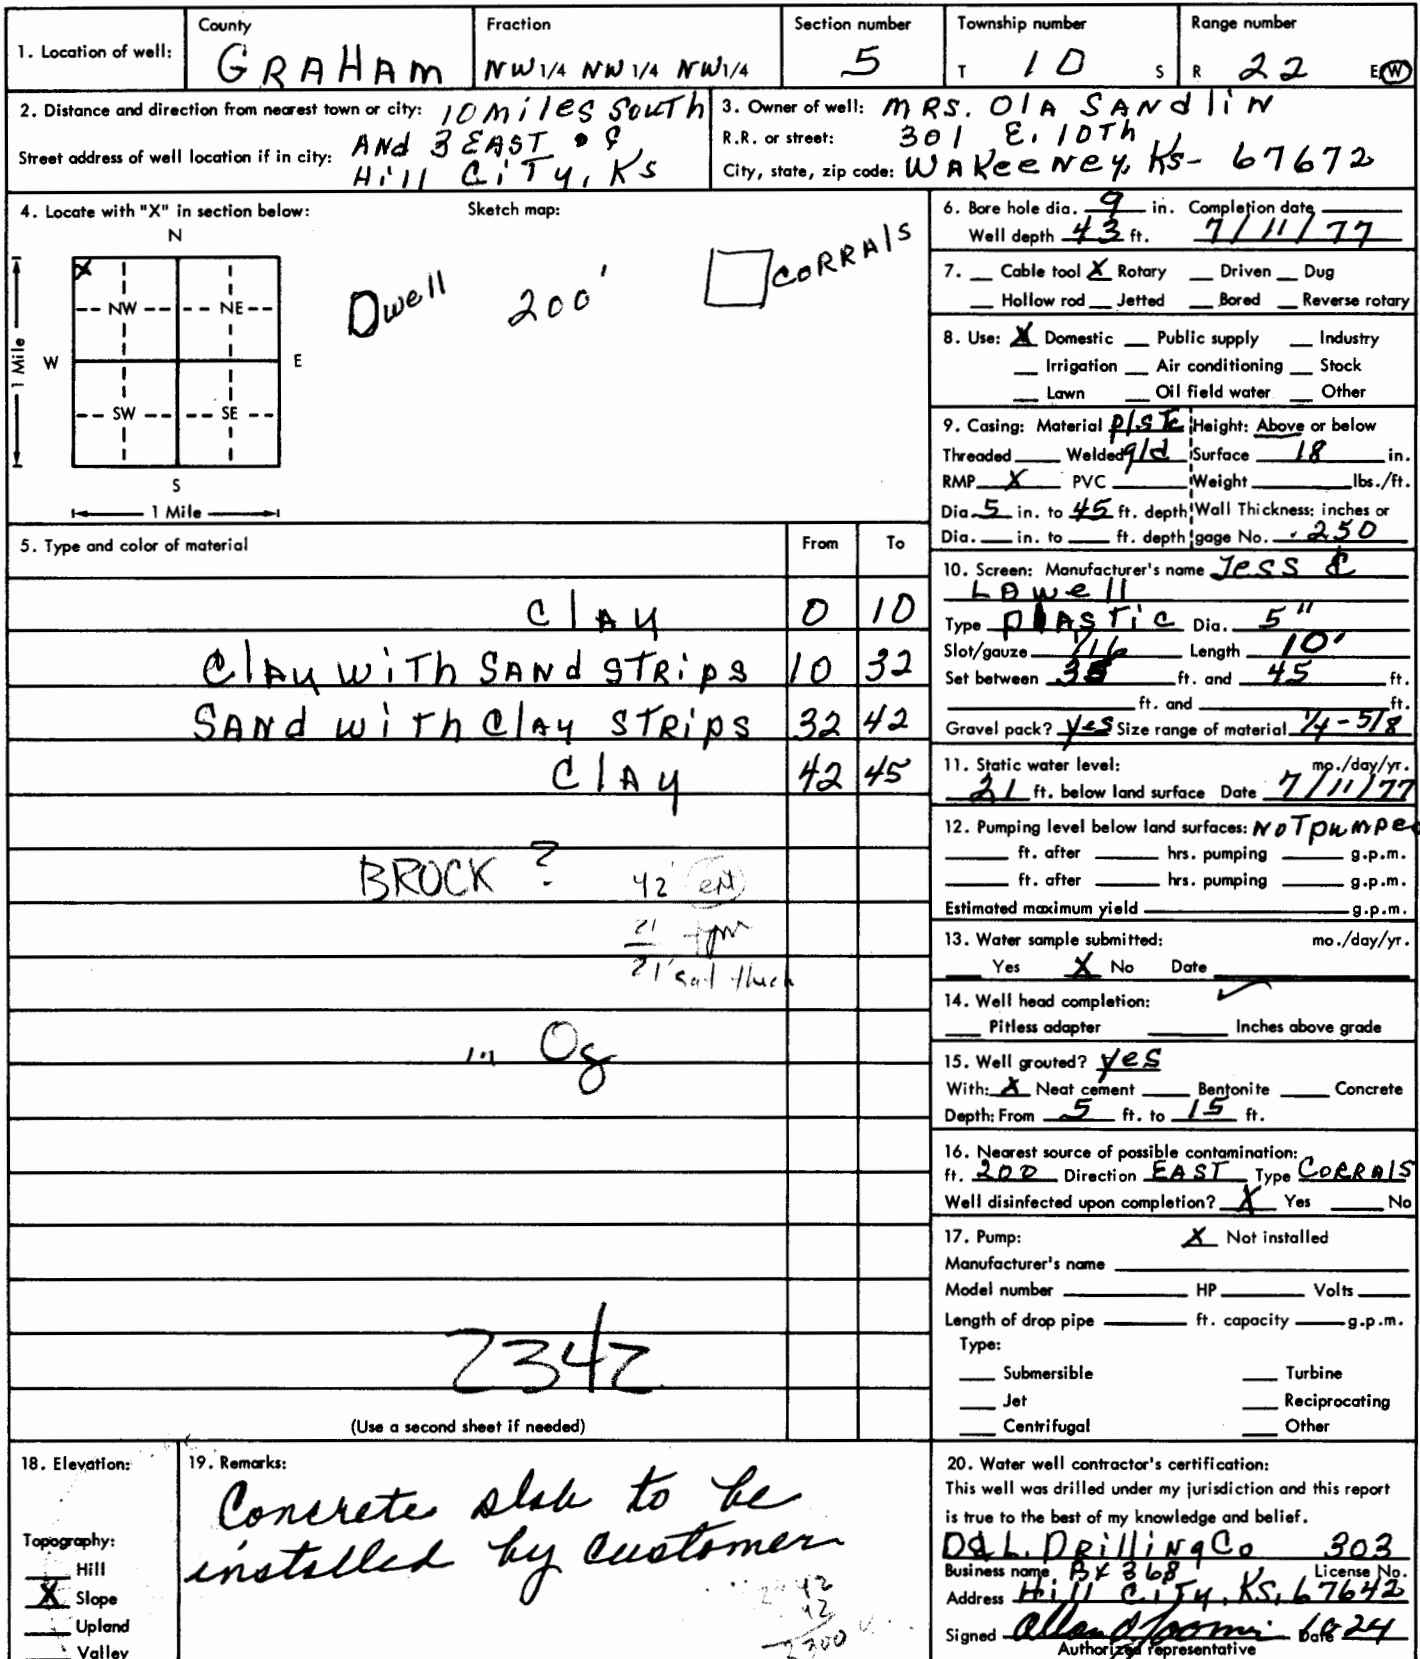 1. Location of well: County GRAHAM Fraction NW 1/4 NW 1/4 NW 1/4 Section number 5 Township number T 10 S Range number R 22 E W
2. Distance and direction from nearest town or city: 10 miles south
And 3 EAST of
Street address of well location if in city: Hill CiTy, Ks
3. Owner of well: MRS. OlA SANdliN
R.R. or street: 301 E. 10Th
City, state, zip code: WAKeeNey, Ks- 67672
4. Locate with "X" in section below:
Sketch map:
N
X
NW NE
W E
SW SE
S
1 Mile
1 Mile
Dwell 200' CORRAlS
5. Type and color of material From To
ClAy 0 10
ClAy wiTh SANd STRips 10 32
SANd wiTh ClAy STRips 32 42
ClAy 42 45
BROCK ?
42'
21
21' sat thick
Og
2342
(Use a second sheet if needed)
6. Bore hole dia. 9 in. Completion date
Well depth 43 ft. 7/11/77
7. Cable tool X Rotary Driven Dug
Hollow rod Jetted Bored Reverse rotary
8. Use: X Domestic Public supply Industry
Irrigation Air conditioning Stock
Lawn Oil field water Other
9. Casing: Material plstc Height: Above or below
Threaded Welded gld Surface 18 in.
RMP X PVC Weight lbs./ft.
Dia. 5 in. to 45 ft. depth Wall Thickness: inches or
Dia. in. to ft. depth gage No. .250
10. Screen: Manufacturer's name Jess &
Lowell
Type plASTiC Dia. 5"
Slot/gauze 1/16 Length 10'
Set between 35 ft. and 45 ft.
ft. and ft.
Gravel pack? yes Size range of material 1/4 - 5/8
11. Static water level: mo./day/yr.
21 ft. below land surface Date 7/11/77
12. Pumping level below land surfaces: NoT pumped
ft. after hrs. pumping g.p.m.
ft. after hrs. pumping g.p.m.
Estimated maximum yield g.p.m.
13. Water sample submitted: mo./day/yr.
Yes X No Date
14. Well head completion:
Pitless adapter Inches above grade
15. Well grouted? yes
With: X Neat cement Bentonite Concrete
Depth: From 5 ft. to 15 ft.
16. Nearest source of possible contamination:
ft. 200 Direction EAST Type CORRAlS
Well disinfected upon completion? X Yes No
17. Pump: X Not installed
Manufacturer's name
Model number HP Volts
Length of drop pipe ft. capacity g.p.m.
Type:
Submersible Turbine
Jet Reciprocating
Centrifugal Other
18. Elevation:
Topography:
Hill
X Slope
Upland
Valley
19. Remarks:
Concrete slab to be
installed by customer
2342
42
2300
20. Water well contractor's certification:
This well was drilled under my jurisdiction and this report
is true to the best of my knowledge and belief.
D&L. DrilliNg Co 303
Business name Bx 368 License No.
Address Hill CiTy, KS, 67642
Signed Date 24
Authorized representative